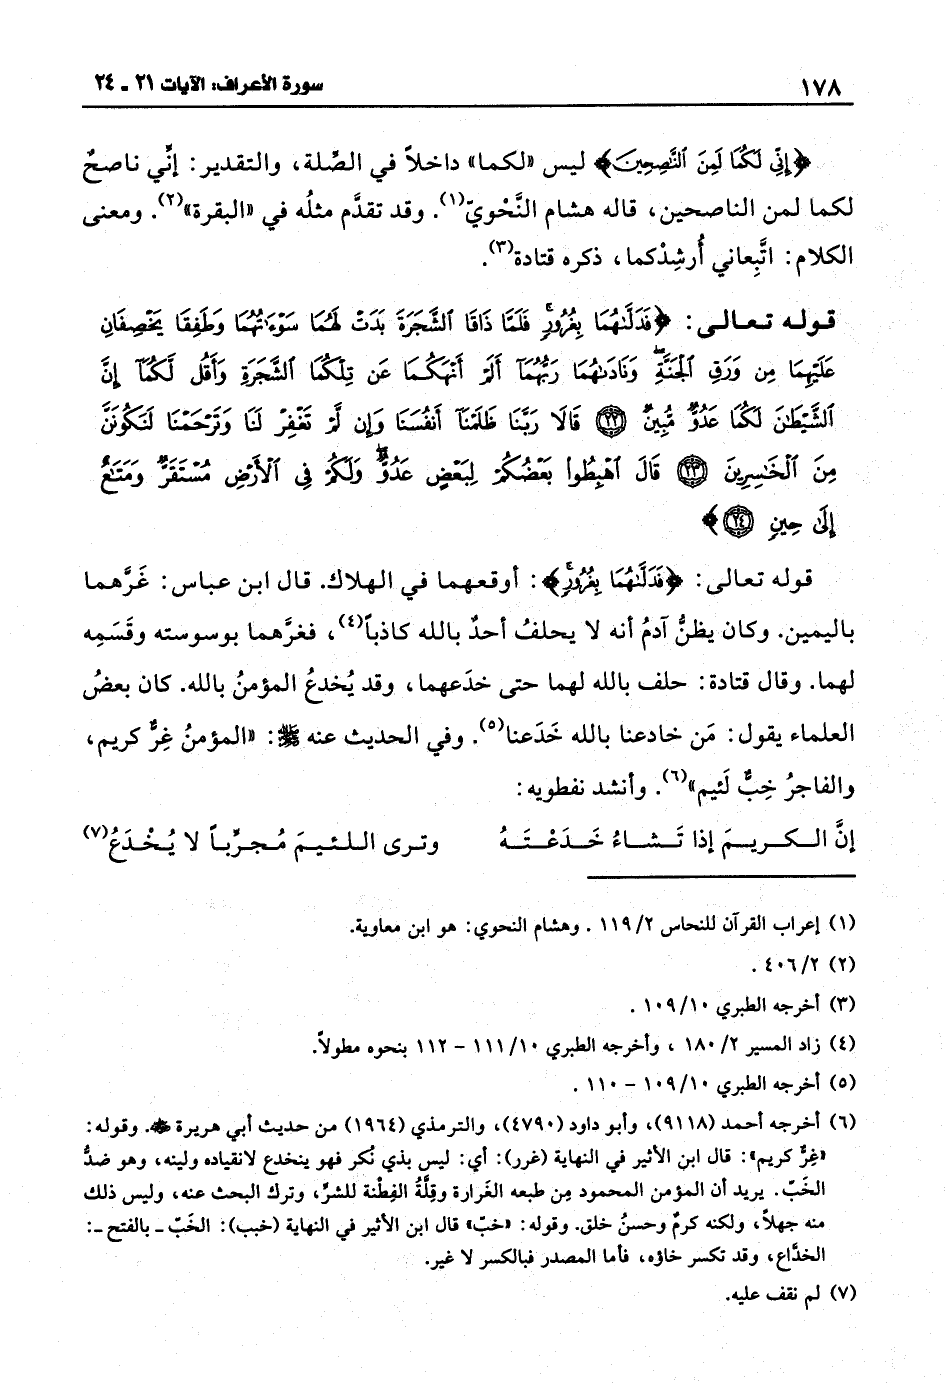 ١٧٨ سورة الأعراف: الآيات ٢١ ـ ٢٤
﴿إِنِّي لَكُمَا لَمِنَ النَّاصِحِينَ﴾ ليس «لكما» داخلاً في الصِّلة، والتقدير: إنِّي ناصحٌ
لكما لمن الناصحين، قاله هشام النَّحْويّ(١). وقد تقدَّم مثلُه في «البقرة»(٢). ومعنى
الكلام: اتَّبِعاني أُرشِدْكما، ذكره قتادة(٣).
قوله تعالى: ﴿فَدَلَّاهُمَا بِغُرُورٍ فَلَمَّا ذَاقَا الشَّجَرَةَ بَدَتْ لَهُمَا سَوْءَاتُهُمَا وَطَفِقَا يَخْصِفَانِ
عَلَيْهِمَا مِن وَرَقِ الْجَنَّةِ وَنَادَاهُمَا رَبُّهُمَا أَلَمْ أَنْهَكُمَا عَن تِلْكُمَا الشَّجَرَةِ وَأَقُل لَّكُمَا إِنَّ
الشَّيْطَانَ لَكُمَا عَدُوٌّ مُّبِينٌ ٢٢ قَالَا رَبَّنَا ظَلَمْنَا أَنفُسَنَا وَإِن لَّمْ تَغْفِرْ لَنَا وَتَرْحَمْنَا لَنَكُونَنَّ
مِنَ الْخَاسِرِينَ ٢٣ قَالَ اهْبِطُوا بَعْضُكُمْ لِبَعْضٍ عَدُوٌّ وَلَكُمْ فِي الْأَرْضِ مُسْتَقَرٌّ وَمَتَاعٌ
إِلَىٰ حِينٍ ٢٤﴾
قوله تعالى: ﴿فَدَلَّاهُمَا بِغُرُورٍ﴾: أوقعهما في الهلاك. قال ابن عباس: غَرَّهما
باليمين. وكان يظنُّ آدمُ أنه لا يحلفُ أحدٌ بالله كاذباً(٤)، فغرَّهما بوسوسته وقَسَمِه
لهما. وقال قتادة: حلف بالله لهما حتى خدَعهما، وقد يُخدعُ المؤمنُ بالله. كان بعضُ
العلماء يقول: مَن خادعنا بالله خَدَعنا(٥). وفي الحديث عنه ﷺ: «المؤمنُ غِرٌّ كريم،
والفاجرُ خِبٌّ لَئيم»(٦). وأنشد نفطويه:
إنَّ الـكـريـمَ إذا تَـشـاءُ خَـدَعْـتَـهُ وتـرى الـلـئـيـمَ مُـجـرِّبـاً لا يُـخْـدَعُ(٧)
(١) إعراب القرآن للنحاس ٢/ ١١٩ . وهشام النحوي: هو ابن معاوية.
(٢) ٢/ ٤٠٦ .
(٣) أخرجه الطبري ١٠/ ١٠٩ .
(٤) زاد المسير ٢/ ١٨٠ ، وأخرجه الطبري ١٠/ ١١١ - ١١٢ بنحوه مطولاً.
(٥) أخرجه الطبري ١٠/ ١٠٩ - ١١٠ .
(٦) أخرجه أحمد (٩١١٨)، وأبو داود (٤٧٩٠)، والترمذي (١٩٦٤) من حديث أبي هريرة ﵁. وقوله:
«غِرٌّ كريم»: قال ابن الأثير في النهاية (غرر): أي: ليس بذي نُكر فهو ينخدع لانقياده ولينه، وهو ضدُّ
الخَبّ. يريد أن المؤمن المحمود مِن طبعه الغَرارة وقِلَّةُ الفِطْنة للشرّ، وترك البحث عنه، وليس ذلك
منه جهلاً، ولكنه كرمٌ وحسنُ خلق. وقوله: «خبّ» قال ابن الأثير في النهاية (خبب): الخَبّ ـ بالفتح ـ:
الخدَّاع، وقد تكسر خاؤه، فأما المصدر فبالكسر لا غير.
(٧) لم نقف عليه.